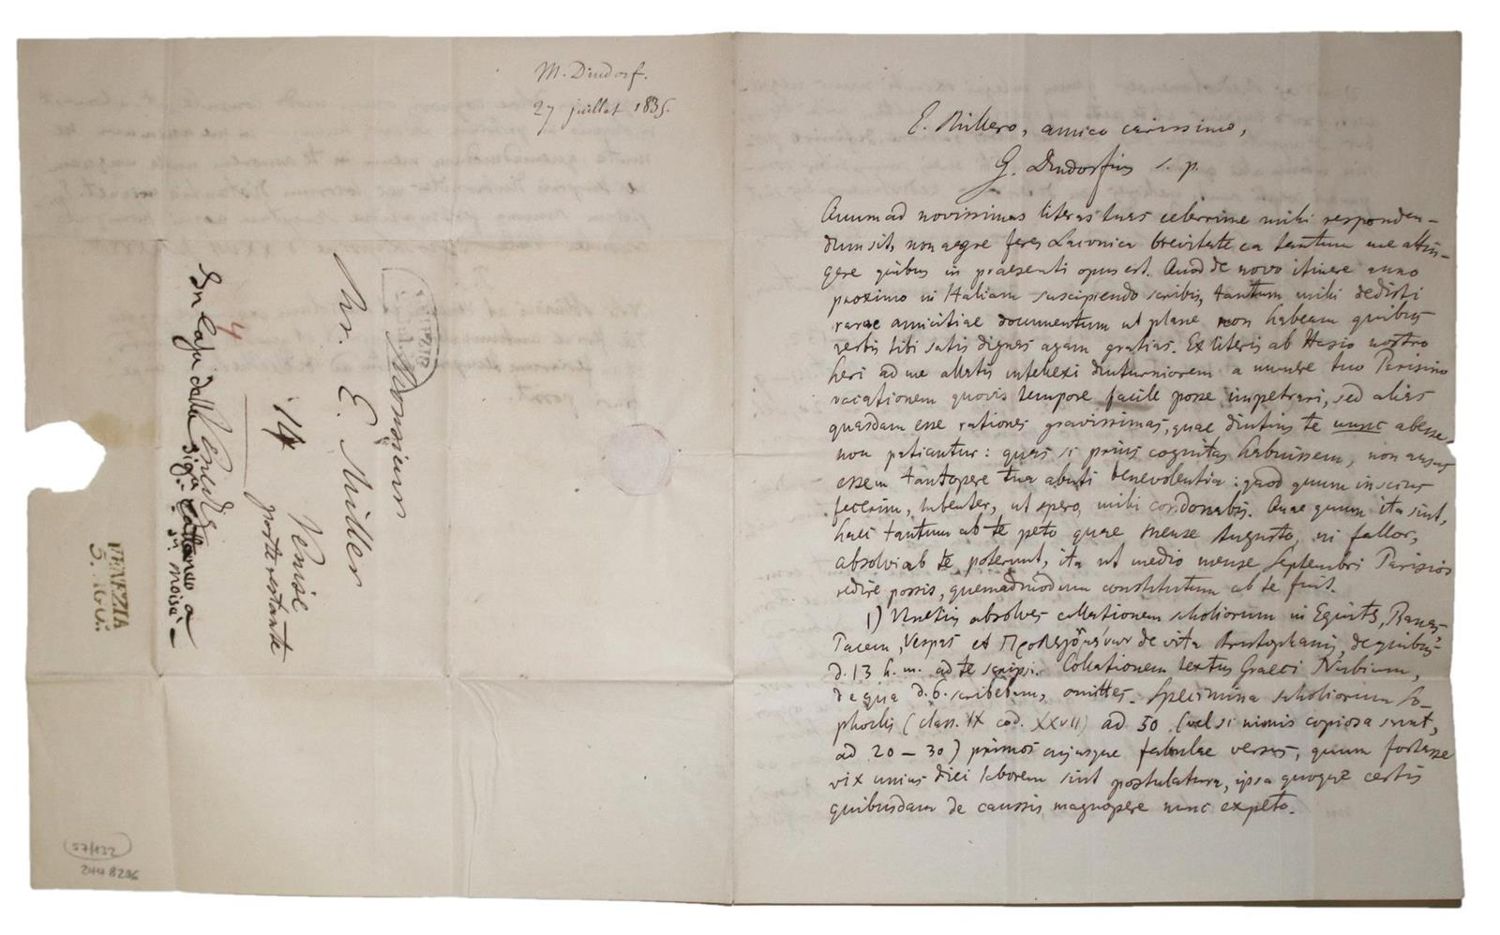 M. Dindorf.
27 juillet 1835.
Monsieur
Mr. E. Miller
Venise
poste restante
14
4
In Casa della Vendi
Sigr. a
S. Moisè
LEIPZIG
VENEZIA
5. AGO.
57/132
E. Millero, amico carissimo,
G. Dindorfius s. p.
Quum ad novissimas literas tuas celerrime mihi responden-
dum sit, non aegre feres Laconica brevitate ea tantum me attin-
gere quibus in praesenti opus est. Quod de novo itinere anno
proximo in Italiam suscipiendo scribis, tantum mihi dedisti
rarae amicitiae documentum ut plane non habeam quibus
verbis tibi satis dignas agam gratias. Ex literis ab Hasio nostro
heri ad me allatis intellexi diuturniorem a munere tuo Parisino
vacationem quovis tempore facile posse impetrari, sed alias
quasdam esse rationes gravissimas, quae diutius te nunc abesse
non patiantur: quas si prius cognitas habuissem, non ausus
essem tantopere tua abuti benevolentia: quod quum inscius
fecerim, lubenter, ut spero, mihi condonabis. Quae quum ita sint,
haec tantum ab te peto quae mense Augusto, ni fallor,
absolvi ab te poterunt, ita ut medio mense Septembri Parisios
redire possis, quemadmodum constitutum ab te fuit.
1) Venetiis absolves collationem scholiorum in Equites, Ranas,
Pacem, Vespas et Προλεγόμενων de vita Aristophanis, de quibus
d. 13 h. m. ad te scripsi. Collationem textus Graeci Nubium,
de qua d. 6. scribebam, omittes. Specimina scholiorum So-
phoclis (class. IX cod. XXVII) ad 50 (vel si nimis copiosa sunt,
ad 20 – 30) primos cujusque fabulae versus, quum fortasse
vix unius diei laborem sint postulatura, ipsa quoque certis
quibusdam de caussis magnopere nunc expeto.